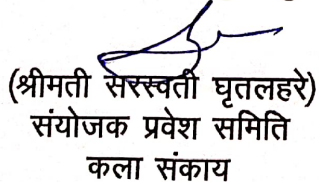 (श्रीमती सरस्वती घृतलहरे)
संयोजक प्रवेश समिति
कला संकाय